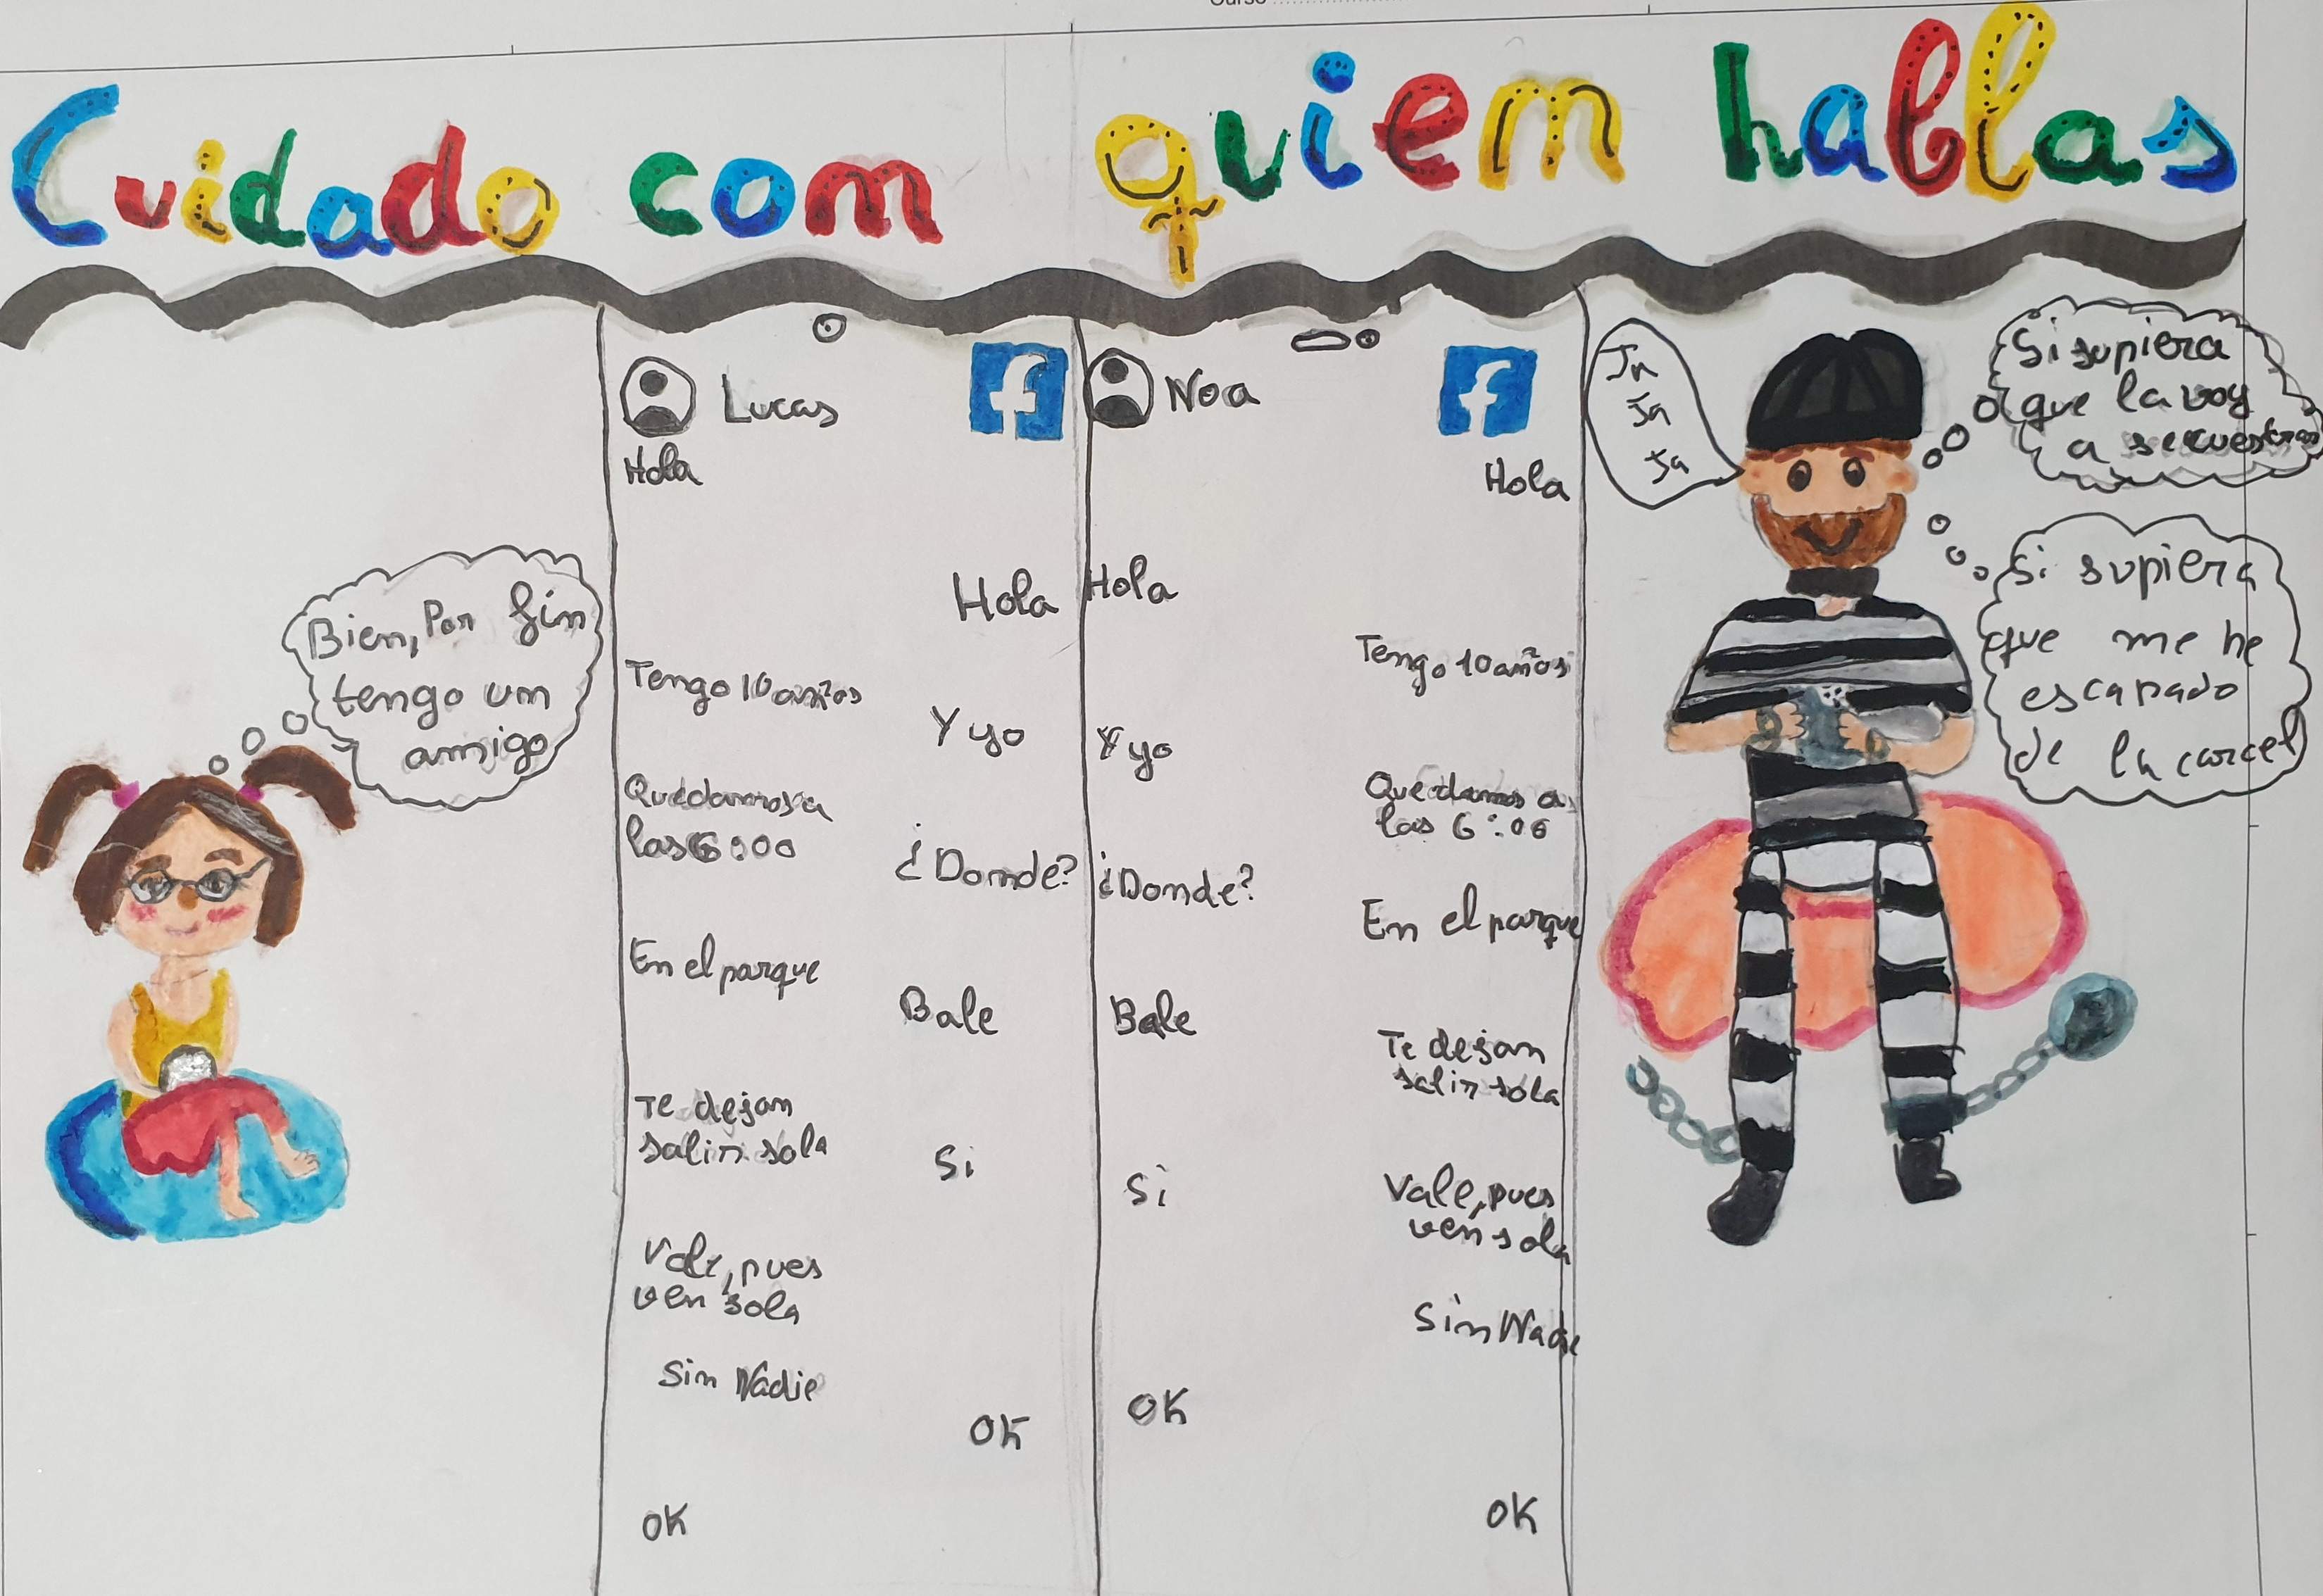 Curso
Cuidado con quien hablas
Bien, Por fin
tengo un
amigo
Lucas
f
Hola
Hola
Tengo 10 años
Y yo
Quedamos a
las 6:00
¿Donde?
En el parque
Bale
Te dejan
salir sola
Si
Vale, pues
ven sola
Sin Nadie
OK
OK
Noa
f
Hola
Hola
Tengo 10 años
Y yo
Quedamos a
las 6:00
¿Donde?
En el parque
Bale
Te dejan
salir sola
Si
Vale, pues
ven sola
Sin Nadie
OK
OK
Ja
Ja
Ja
Si supiera
que la voy
a secuestrar
Si supiera
que me he
escapado
de la carcel